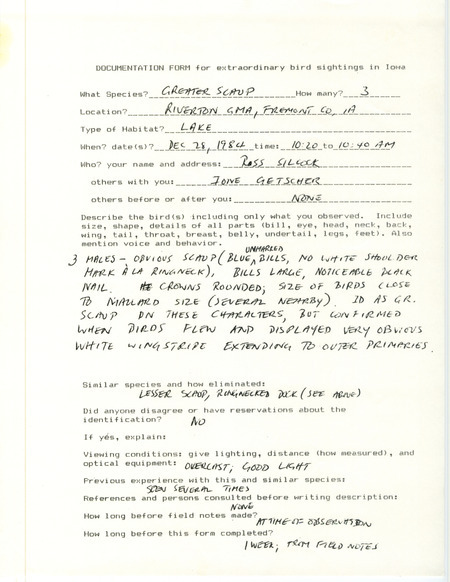 DOCUMENTATION FORM for extraordinary bird sightings in Iowa
What Species? GREATER SCAUP How many? 3
Location? RIVERTON GMA, FREMONT CO, IA
Type of Habitat? LAKE
When? date(s)? DEC 28, 1984 time: 10:20 to 10:40 AM
Who? your name and address: ROSS SILCOCK
others with you: IONE GETSCHER
others before or after you: NONE
Describe the bird(s) including only what you observed. Include
size, shape, details of all parts (bill, eye, head, neck, back,
wing, tail, throat, breast, belly, undertail, legs, feet). Also
mention voice and behavior.
3 MALES - OBVIOUS SCAUP (BLUE UNMARKED BILLS, NO WHITE SHOULDER
MARK À LA RINGNECK), BILLS LARGE, NOTICEABLE BLACK
NAIL. CROWNS ROUNDED; SIZE OF BIRDS CLOSE
TO MALLARD SIZE (SEVERAL NEARBY). ID AS GR.
SCAUP ON THESE CHARACTERS, BUT CONFIRMED
WHEN BIRDS FLEW AND DISPLAYED VERY OBVIOUS
WHITE WINGSTRIPE EXTENDING TO OUTER PRIMARIES.
Similar species and how eliminated:
LESSER SCAUP, RINGNECKED DUCK (SEE ABOVE)
Did anyone disagree or have reservations about the
identification? NO
If yes, explain:
Viewing conditions: give lighting, distance (how measured), and
optical equipment: OVERCAST; GOOD LIGHT
Previous experience with this and similar species:
SEEN SEVERAL TIMES
References and persons consulted before writing description:
NONE
How long before field notes made? AT TIME OF OBSERVATION
How long before this form completed?
1 WEEK; FROM FIELD NOTES